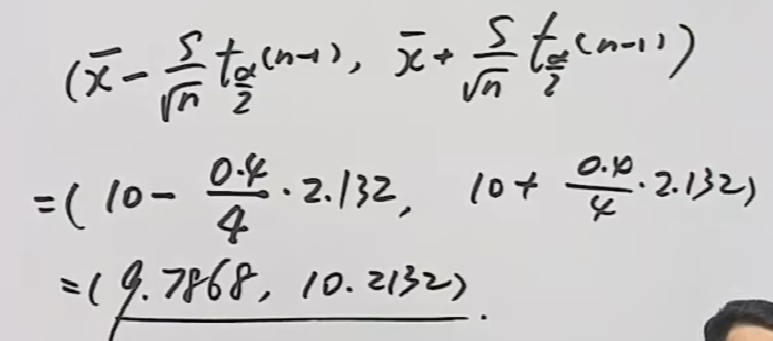 (x̄ - S/√n t_{α/2}(n-1), x̄ + S/√n t_{α/2}(n-1))
=(10 - 0.4/4 · 2.132, 10 + 0.4/4 · 2.132)
=(9.7868, 10.2132).